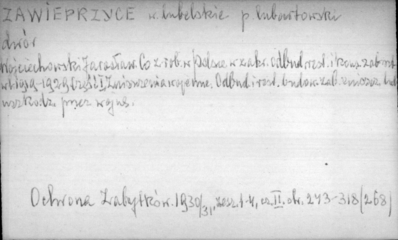 ZAWIEPRZYCE w. lubelskie p. lubartowski
dwór
Wojciechowski Jarosław. Co zrob. w Polsce w zakr. Odbud. rest. i kons. zab. arch.
w l. 1919-1929 Część I Zniszczenia wojenne. Odbud. i rest. budow. zab. zniszcz. lub
uszkodz. przez wojnę.
Ochrona Zabytków. 1930/31, zesz. 1-4, cz. II, str. 273-318 (268)